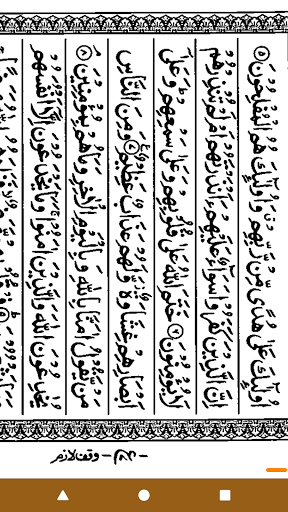 اُولٰٓئِكَ عَلٰى هُدًى مِّنْ رَّبِّهِمْ ۗ وَاُولٰٓئِكَ هُمُ الْمُفْلِحُوْنَ ۝۵
اِنَّ الَّذِيْنَ كَفَرُوْا سَوَآءٌ عَلَيْهِمْ ءَاَنْذَرْتَهُمْ اَمْ لَمْ تُنْذِرْهُمْ
لَا يُؤْمِنُوْنَ ۝۶ خَتَمَ اللّٰهُ عَلٰى قُلُوْبِهِمْ وَعَلٰى سَمْعِهِمْ ؕ وَعَلٰٓى
اَبْصَارِهِمْ غِشَاوَةٌ ز وَّلَهُمْ عَذَابٌ عَظِيْمٌ ۝۷ وَمِنَ النَّاسِ
مَنْ يَّقُوْلُ اٰمَنَّا بِاللّٰهِ وَبِالْيَوْمِ الْاٰخِرِ وَمَا هُمْ بِمُؤْمِنِيْنَ ۝۸
يُخٰدِعُوْنَ اللّٰهَ وَالَّذِيْنَ اٰمَنُوْا ۚ وَمَا يَخْدَعُوْنَ اِلَّآ اَنْفُسَهُمْ
وقف لازم